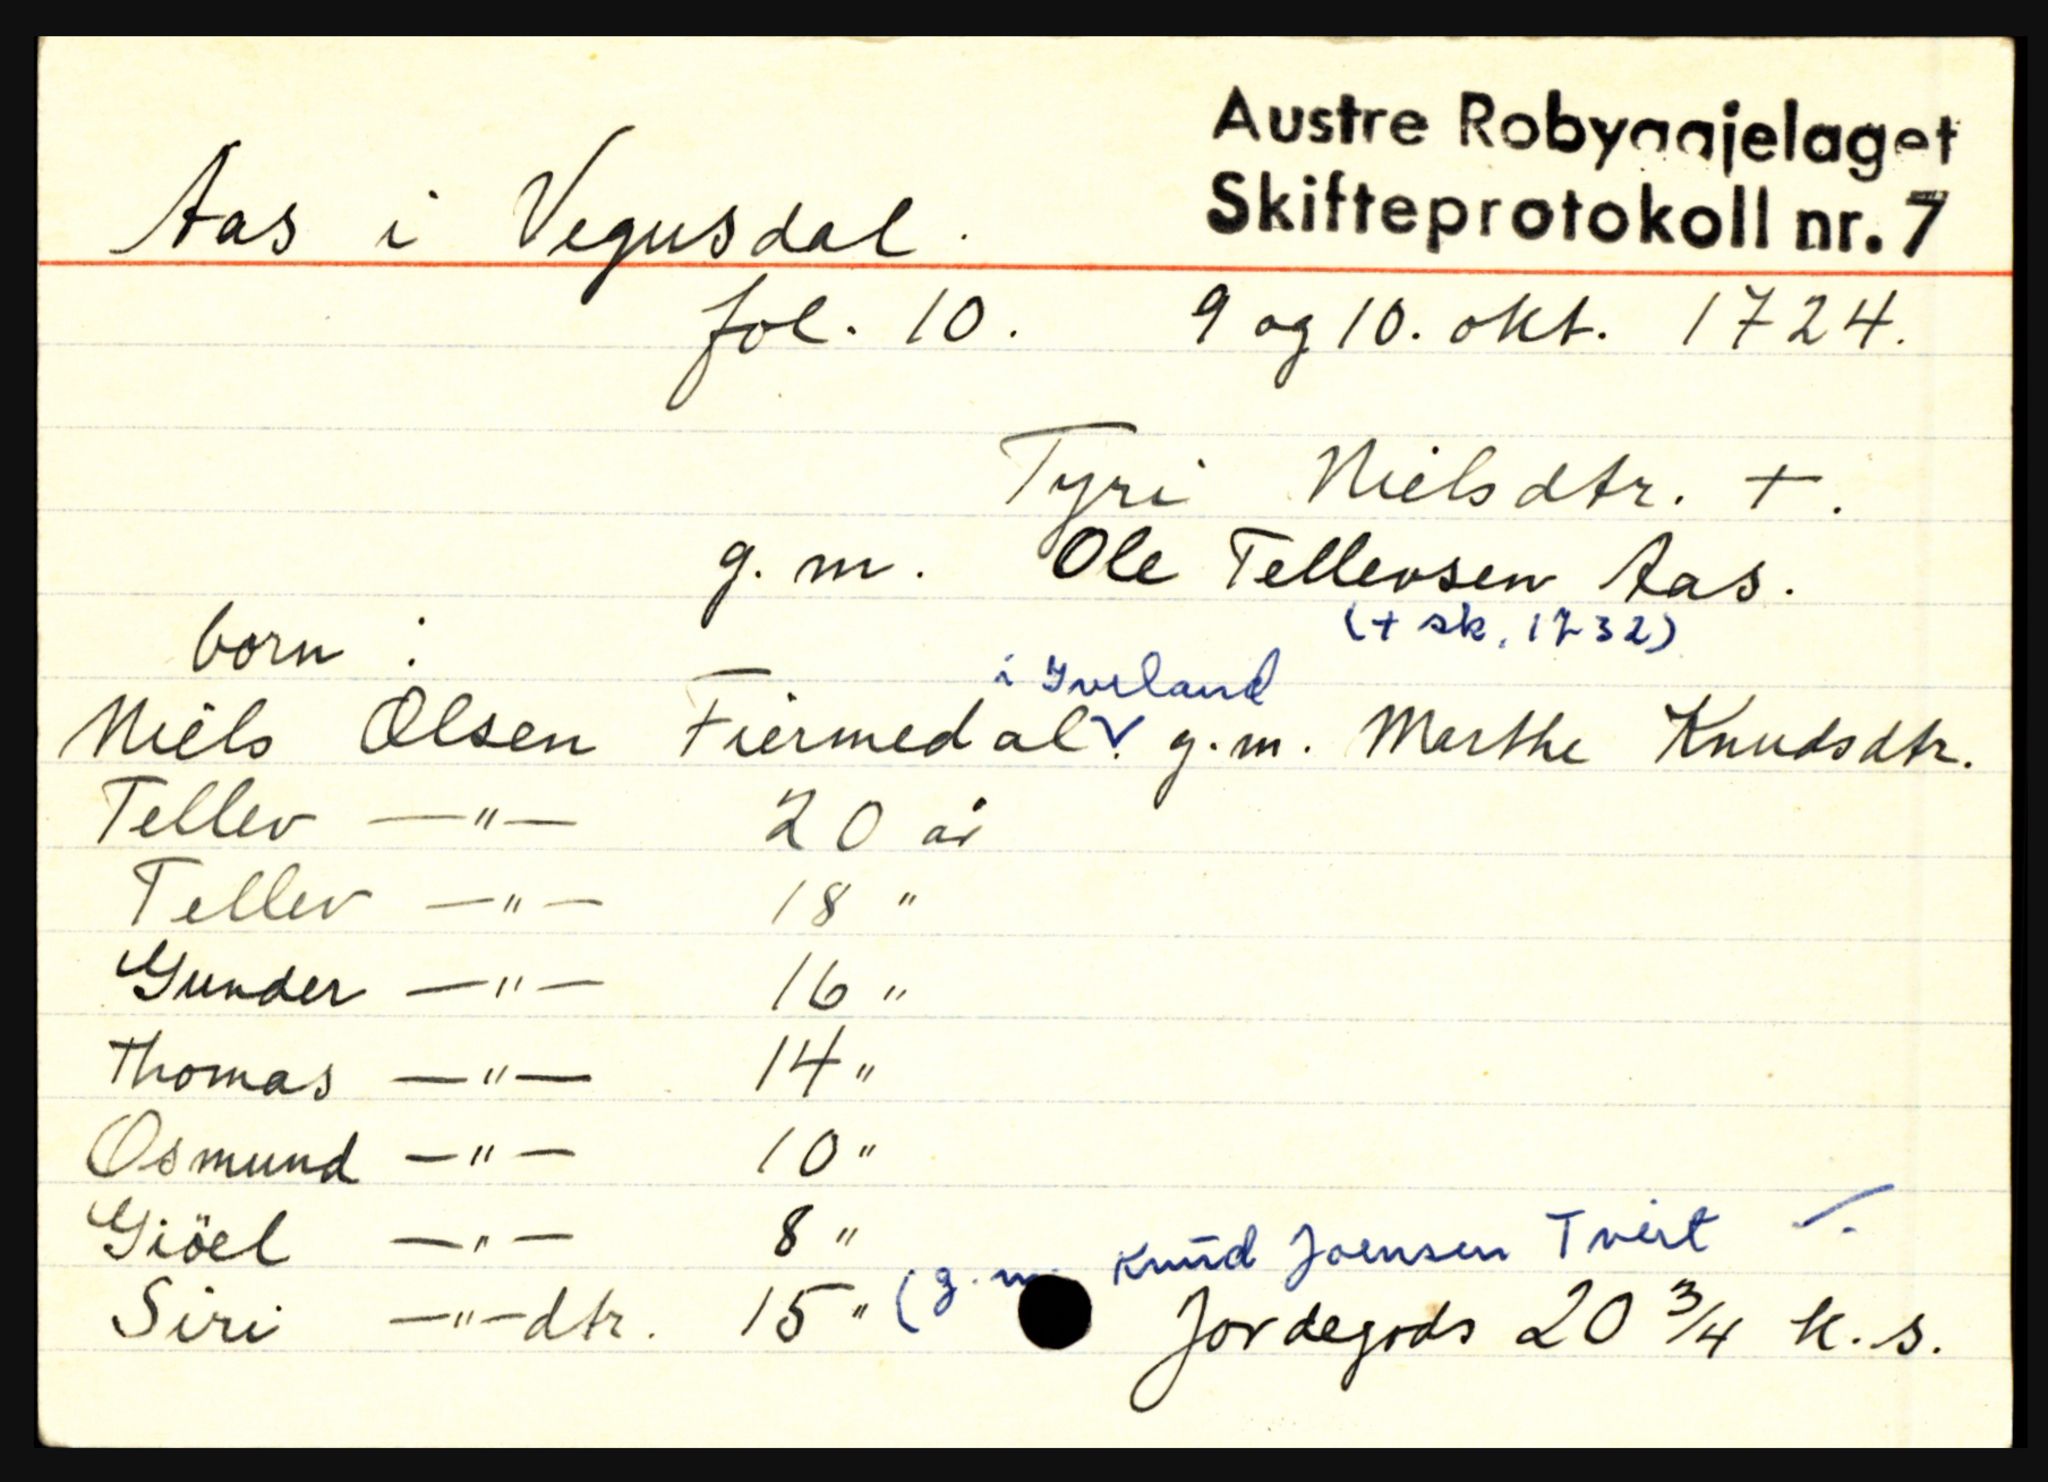 Austre Robyggjelaget
Skifteprotokoll nr. 7
Aas i Vegusdal.
fol. 10. 9 og 10. okt. 1724.
Tyri Nielsdtr. +.
g. m. Ole Tellevsen Aas.
(+ sk. 1732)
born :
i Iveland
Niels Olsen Fiermedal V. g. m. Marthe Knudsdtr.
Tellev —"— 20 år
Tellev —"— 18 "
Gunder —"— 16 "
Thomas —"— 14 "
Osmund —"— 10 "
Giöel —"— 8 "
(g. m. Knud Joensen Tveit
Siri —"—dtr. 15 "
Jordegods 20 3/4 k. s.